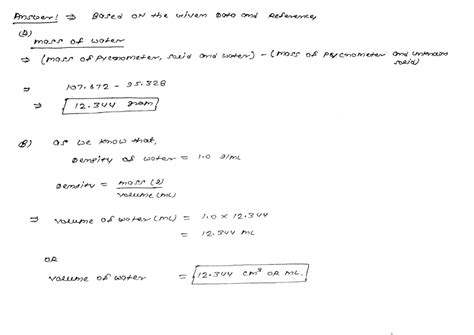 Answer! ⇒ Based on the given Data and Reference,
(A)
mass of water
⇒ (mass of pycnometer, solid and water) - (mass of pycnometer and unknown solid)
⇒ 107.672 - 95.328
⇒ 12.344 gram
(B) as we know that,
Density of water = 1.0 g/mL
Density = mass (g) / volume (mL)
⇒ volume of water (mL) = 1.0 x 12.344
= 12.344 mL
OR
volume of water = 12.344 cm³ OR mL.